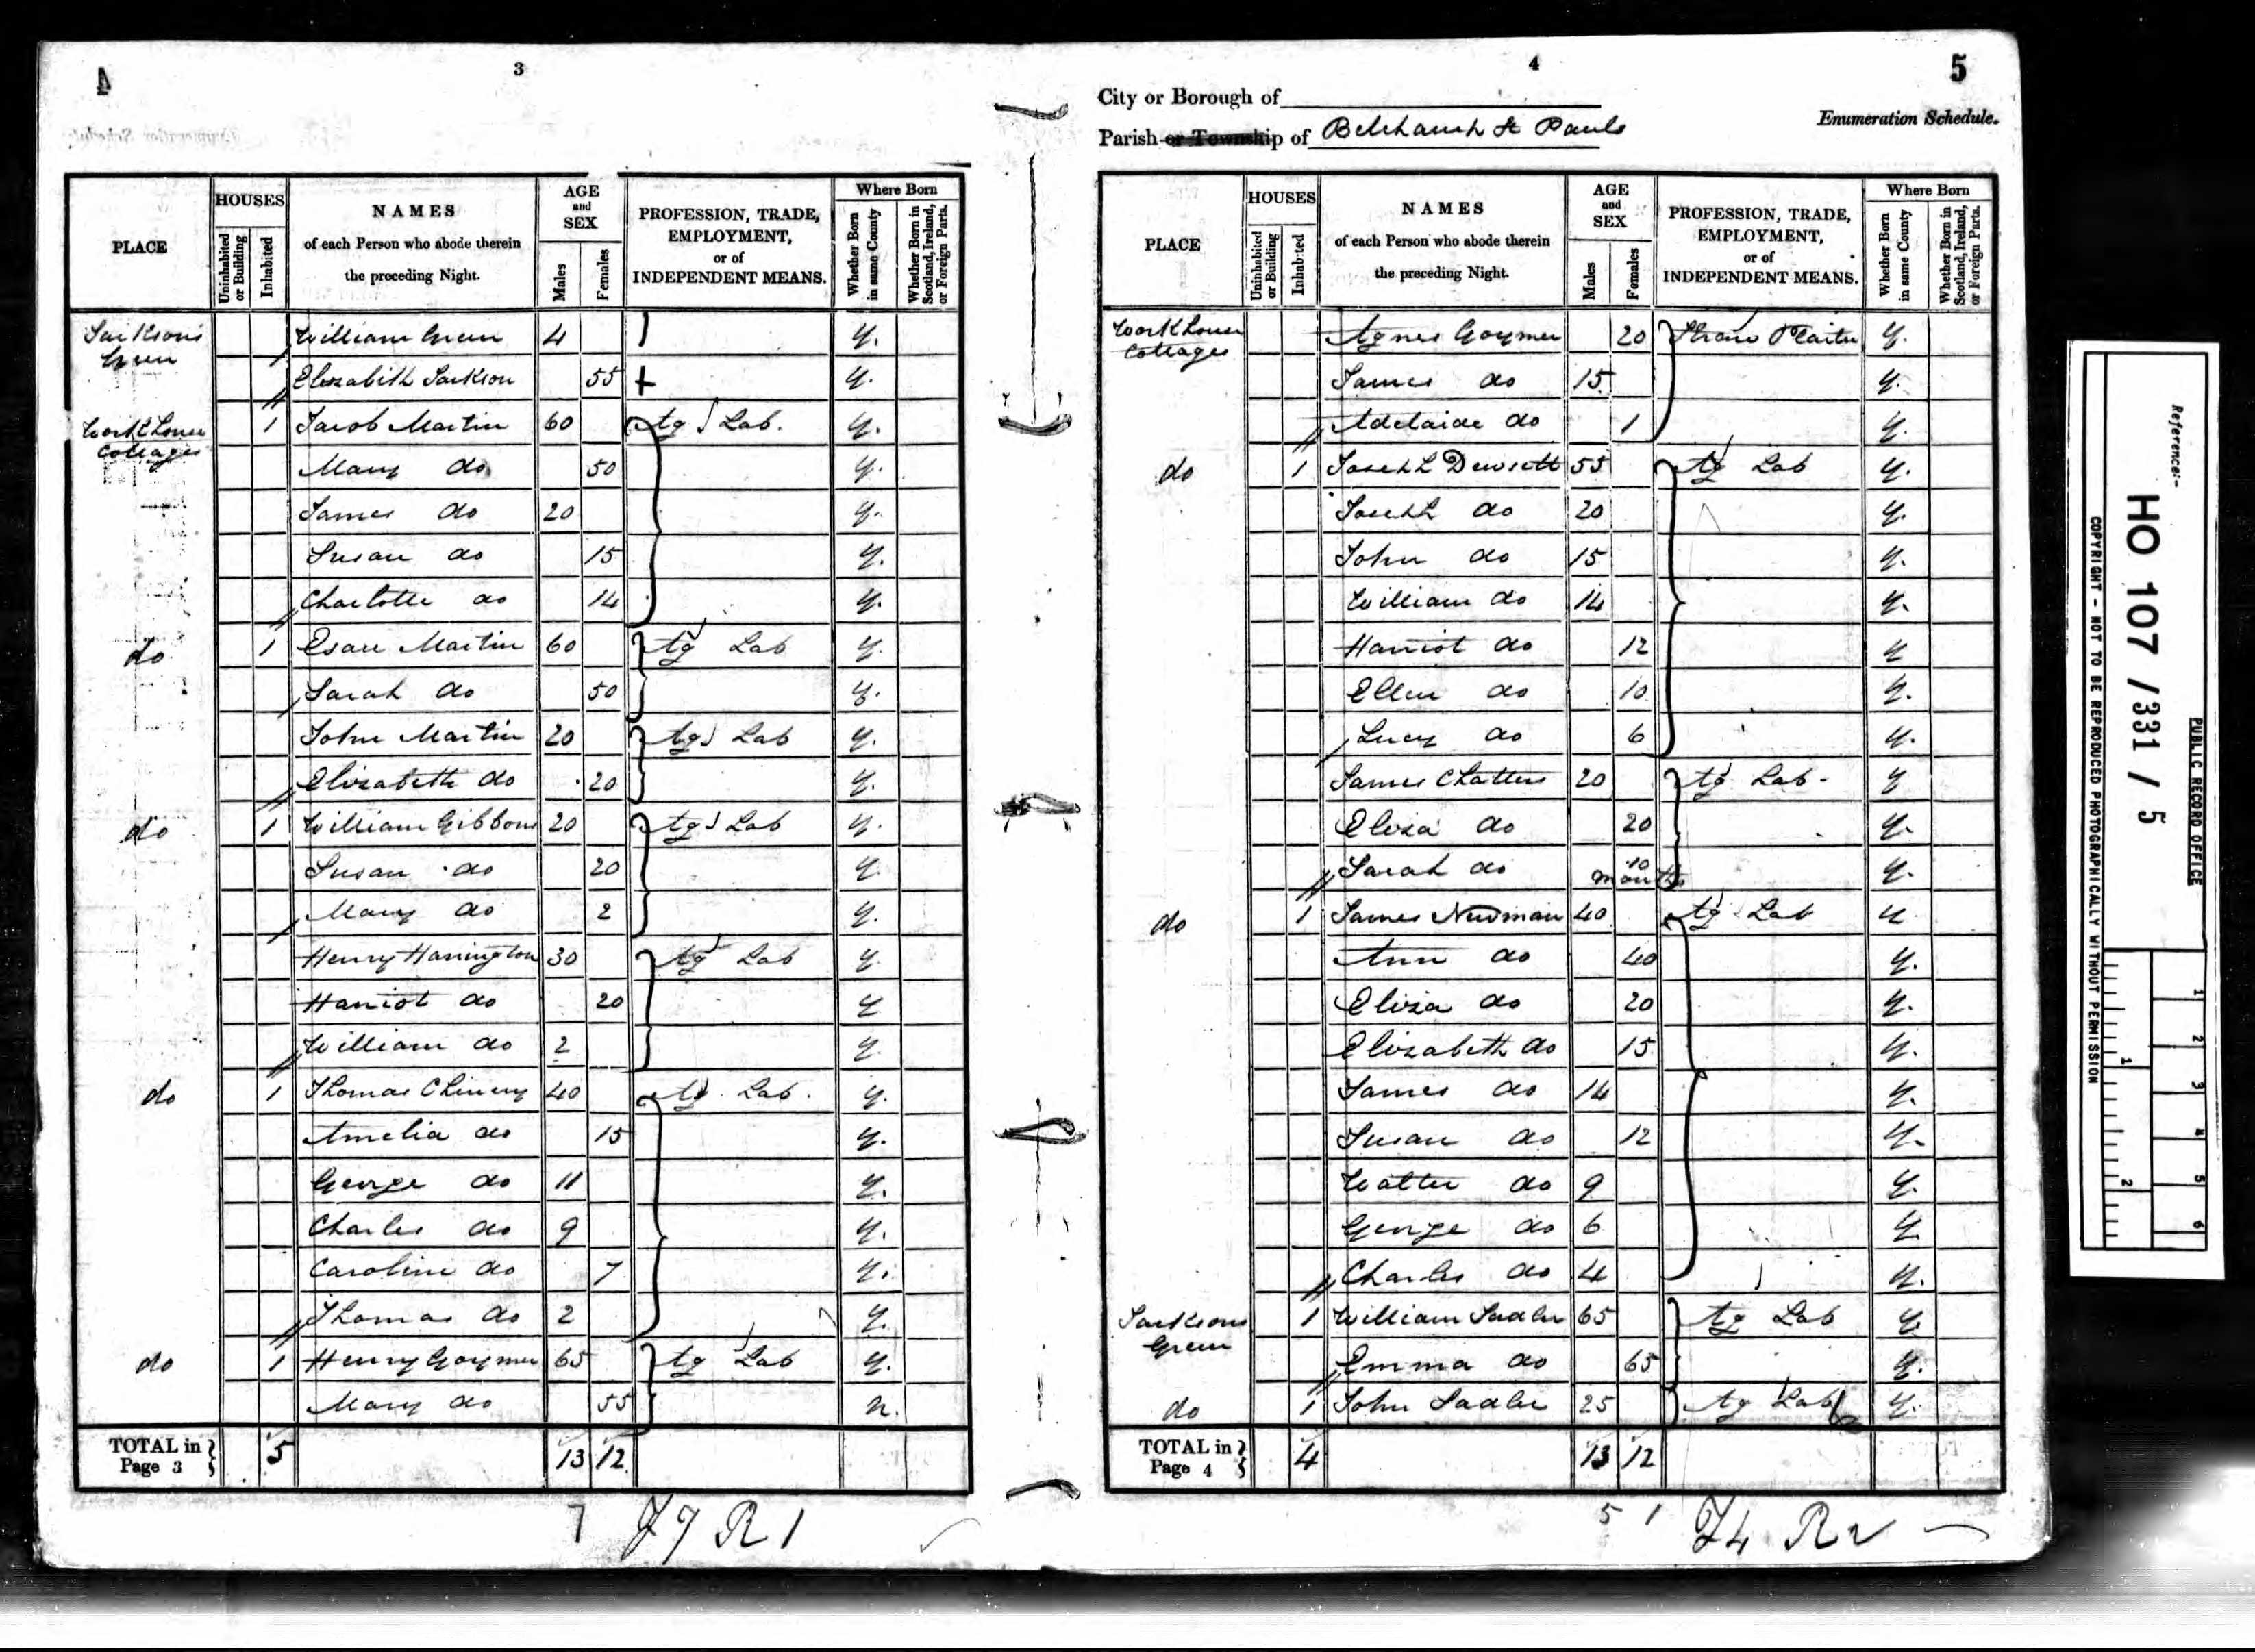 3
4
HOUSES
AGE and SEX
Where Born
PLACE
Uninhabited or Building
Inhabited
NAMES of each Person who abode therein the preceding Night.
Males
Females
PROFESSION, TRADE, EMPLOYMENT, or of INDEPENDENT MEANS.
Whether Born in same County
Whether Born in Scotland, Ireland, or Foreign Parts.
Jacksons Green William Green 4 y.
Elizabith Jackson 55 y.
Workhouse Cottages 1 Jacob Martin 60 Ag Lab. y.
Mary do 50 y.
James do 20 y.
Susan do 15 y.
Charlotte do 14 y.
do 1 Esau Martin 60 Ag Lab y.
Sarah do 50 y.
John Martin 20 Ag Lab y.
Elizabeth do 20 y.
do 1 William Gibbons 20 Ag Lab y.
Susan do 20 y
Mary do 2 y.
Henry Harrington 30 Ag Lab y.
Harriot do 20 y
William do 2 y.
do 1 Thomas Chinery 40 Ag Lab. y.
Amelia do 15 y.
George do 11 y.
Charles do 9 y.
Caroline do 7 y.
Thomas do 2 y.
do 1 Henry Goymer 65 Ag Lab y.
Mary do 55 n.
TOTAL in Page 3 5 13 12
7 R 1
4
5
City or Borough of
Enumeration Schedule.
Parish or Township of Belchamp St Pauls
HOUSES
AGE and SEX
Where Born
PLACE
Uninhabited or Building
Inhabited
NAMES of each Person who abode therein the preceding Night.
Males
Females
PROFESSION, TRADE, EMPLOYMENT, or of INDEPENDENT MEANS.
Whether Born in same County
Whether Born in Scotland, Ireland, or Foreign Parts.
Workhouse Cottages Agnes Goymer 20 Straw Plaiter y.
James do 15 y.
Adelaide do 1 y.
do 1 Joseph Dowsett 55 Ag Lab y.
Joseph do 20 y.
John do 15 y.
William do 14 y.
Harriot do 12 y
Ellen do 10 y.
Lucy do 6 y.
James Chatters 20 Ag Lab y
Eliza do 20 y.
Sarah do 10 months y.
do 1 James Newman 40 Ag Lab y
Ann do 40 y.
Eliza do 20 y.
Elizabeth do 15 y.
James do 14 y.
Susan do 12 y.
Walter do 9 y.
George do 6 y
Charles do 4 y.
Jacksons Green 1 William Sadler 65 Ag Lab y
Emma do 65 y.
do 1 John Sadler 25 Ag Lab y.
TOTAL in Page 4 4 13 12
5 1 R
Reference:-
HO 107 / 331 / 5
PUBLIC RECORD OFFICE
COPYRIGHT - NOT TO BE REPRODUCED PHOTOGRAPHICALLY WITHOUT PERMISSION
1 2 3 4 5 6
1 2